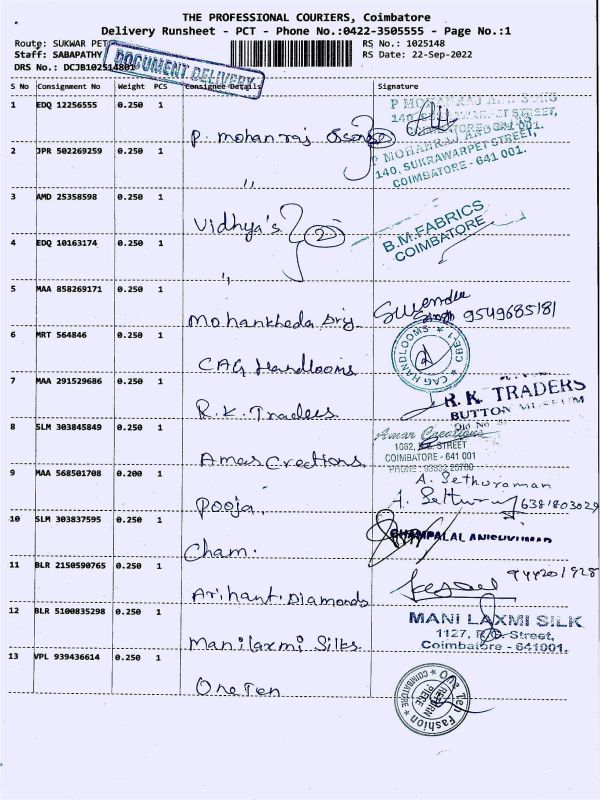 THE PROFESSIONAL COURIERS, Coimbatore
Delivery Runsheet - PCT - Phone No.:0422-3505555 - Page No.:1
Route: SUKWAR PET
RS No.: 1025148
Staff: SABAPATHY
RS Date: 22-Sep-2022
DRS No.: DCJB102514801
DOCUMENT DELIVERY
S No Consignment No Weight PCS Consignee Details Signature
1 EDQ 12256555 0.250 1
P. mohanraj
P MOHANRAJ AND SONS
140, SUKRAWARPET STREET,
COIMBATORE - 641 001.
2 JPR 502269259 0.250 1
"
P MOHANRAJ AND SONS
140, SUKRAWARPET STREET,
COIMBATORE - 641 001.
3 AMD 25358598 0.250 1
Vidhya's 2
B.M.FABRICS
COIMBATORE
4 EDQ 10163174 0.250 1
"
5 MAA 858269171 0.250 1
Mohankheda
Surender
Singh 9549685181
6 MRT 564846 0.250 1
CAG Handlooms
CAG HANDLOOMS
7 MAA 291529686 0.250 1
R.K. Traders
R.K. TRADERS
BUTTON MUSEUM
8 SLM 303845849 0.250 1
Amar Creations
Amar Creations
COIMBATORE - 641 001
9 MAA 568501708 0.200 1
Pooja.
A. Sethuraman
6381803029
10 SLM 303837595 0.250 1
Cham.
CHAMPALAL
11 BLR 2150590765 0.250 1
Arihant Diamonds
12 BLR 5100835298 0.250 1
Manilaxmi Silks.
MANI LAXMI SILK
1127, R.G. Street,
Coimbatore - 641001.
13 VPL 939436614 0.250 1
One Ten
One Ten Fashion
COIMBATORE